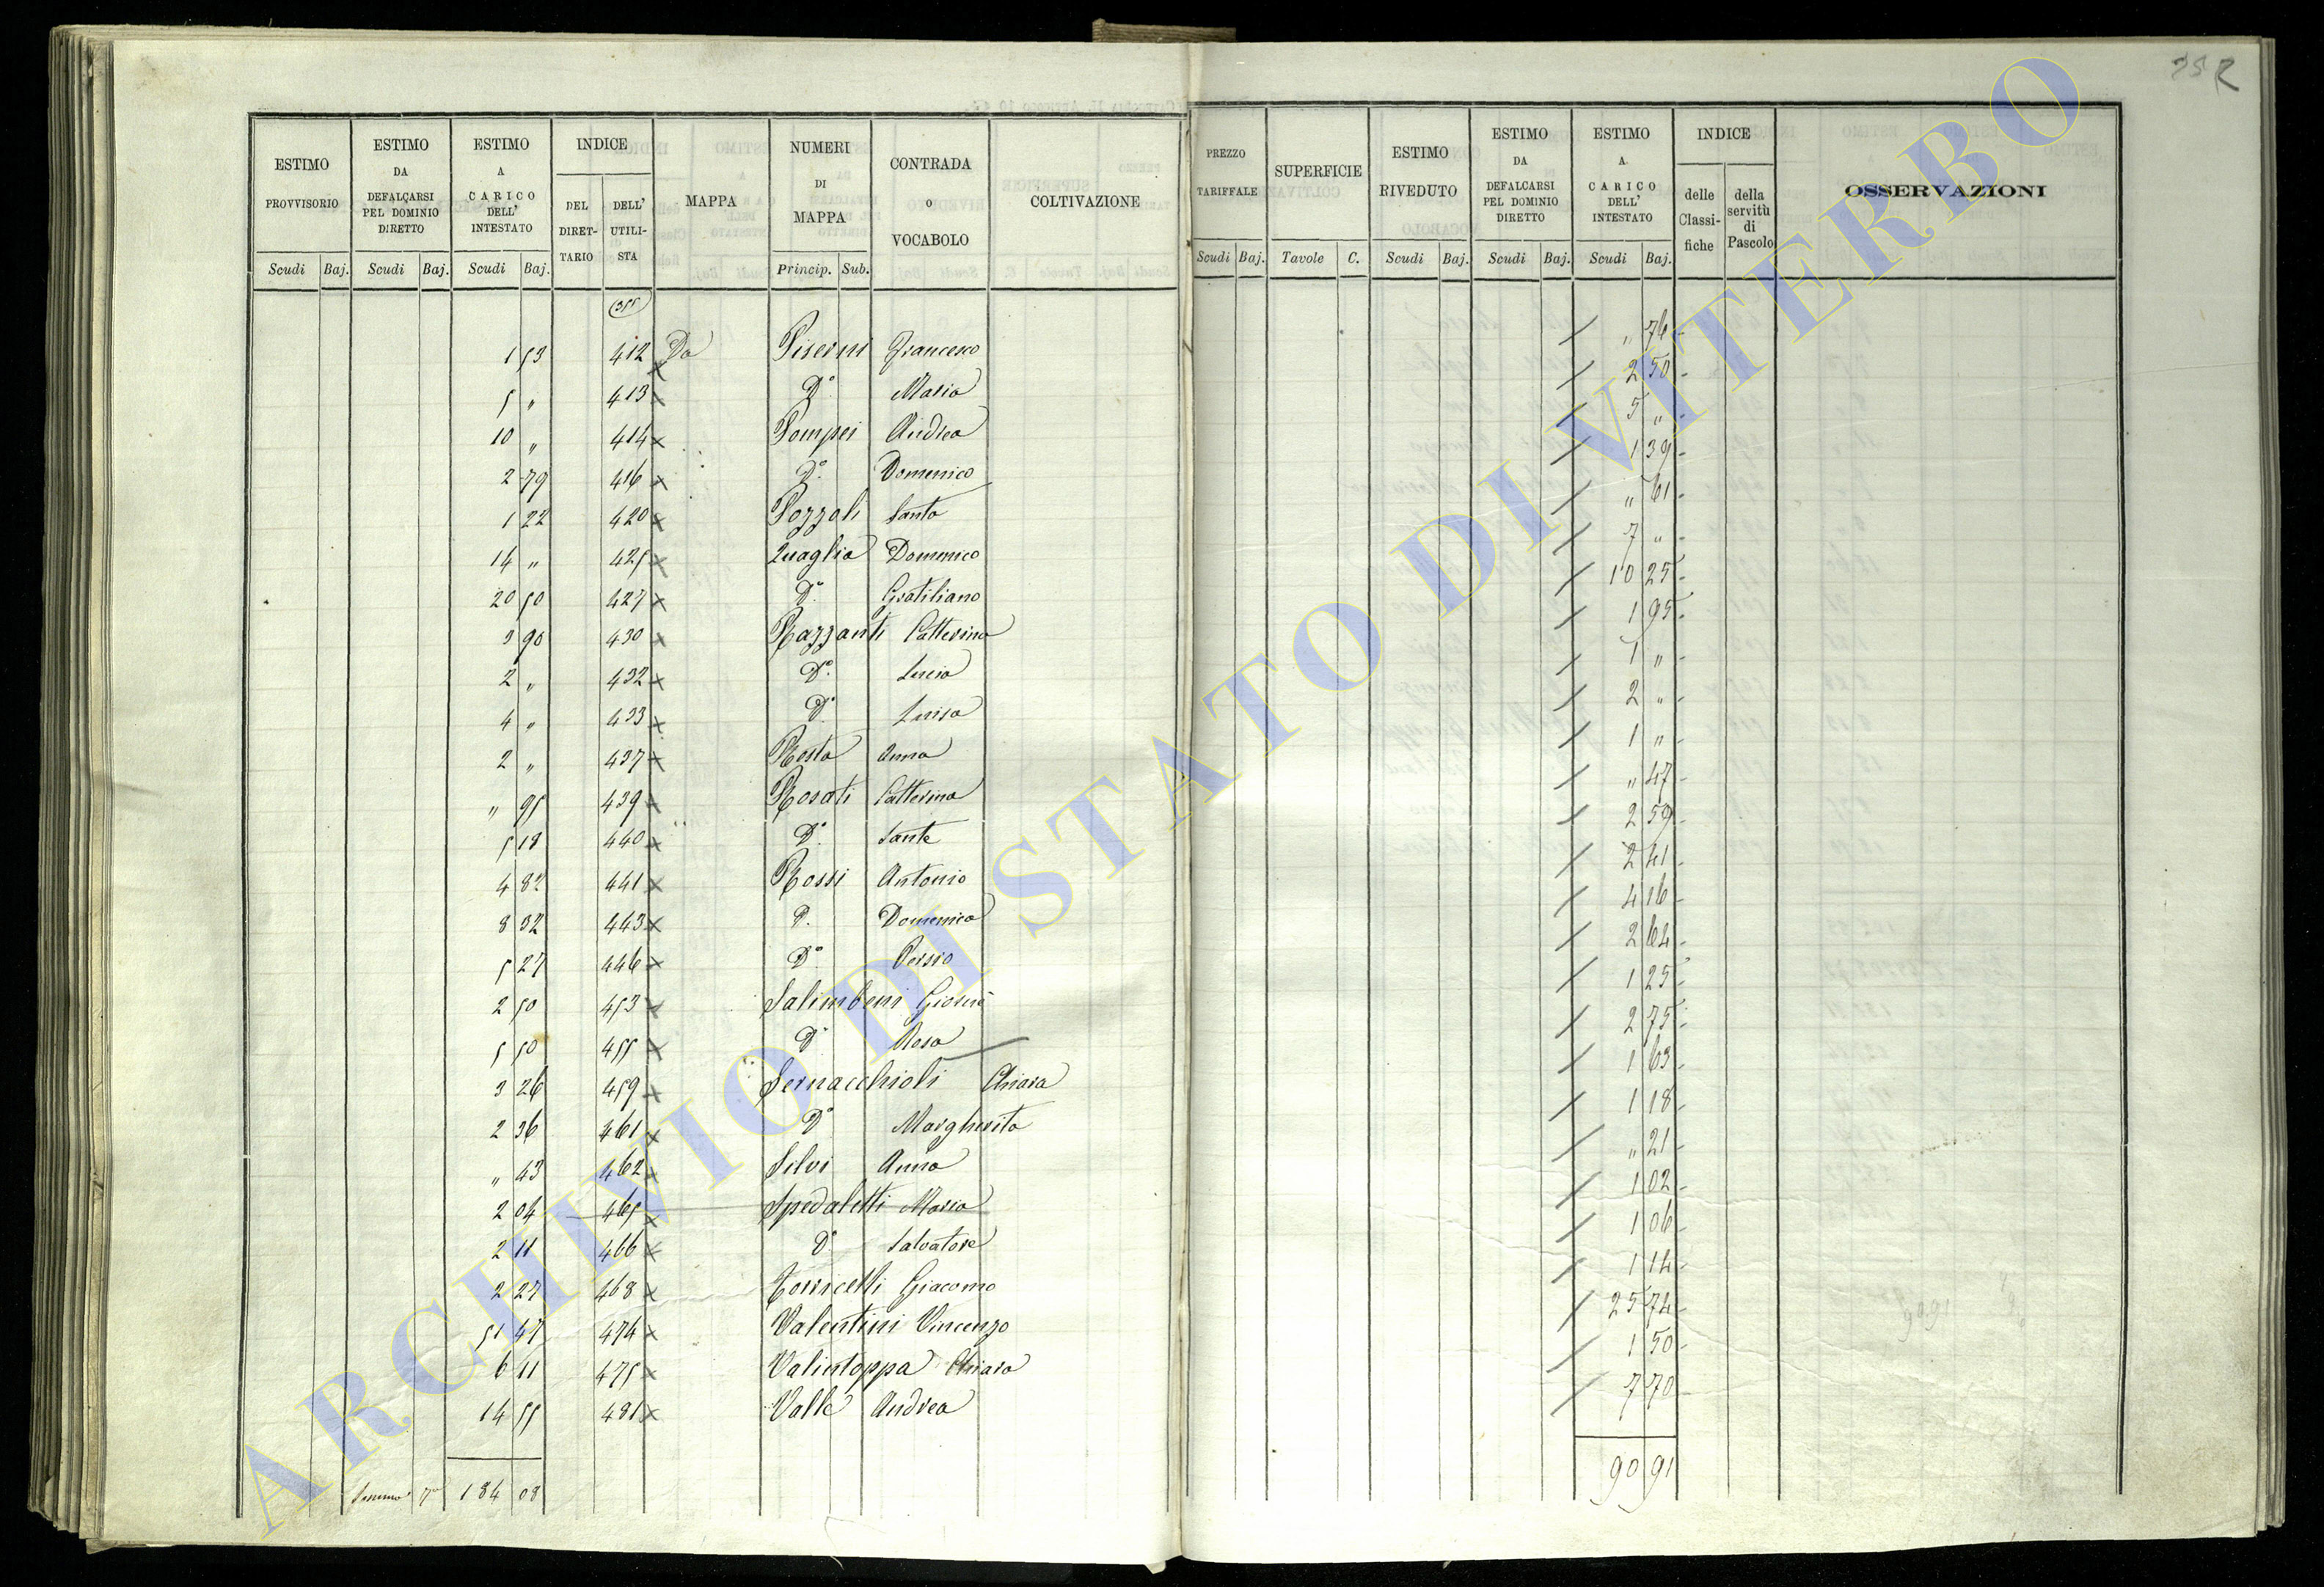 25 R
ESTIMO PROVVISORIO
ESTIMO DA DEFALCARSI PEL DOMINIO DIRETTO
ESTIMO A CARICO DELL' INTESTATO
INDICE
DEL DIRETTARIO
DELL' UTILISTA
MAPPA
NUMERI DI MAPPA
CONTRADA o VOCABOLO
COLTIVAZIONE
PREZZO TARIFFALE
SUPERFICIE
ESTIMO RIVEDUTO
ESTIMO DA DEFALCARSI PEL DOMINIO DIRETTO
ESTIMO A CARICO DELL' INTESTATO
INDICE
delle Classifiche
della servitù di Pascolo
OSSERVAZIONI
Scudi Baj. Scudi Baj. Scudi Baj. Princip. Sub. Scudi Baj. Tavole C. Scudi Baj. Scudi Baj. Scudi Baj.
1 53 412 Da Piserni Francesco / " 76
5 " 413 Do Maria / 2 50
10 " 414 Pompei Andrea / 5 "
2 79 416 Do Domenico / 1 39
1 22 420 Pozzoli Santa / " 61
14 " 425 Quaglia Domenico / 7 "
20 50 427 Do Gratiliano / 10 25
3 90 430 Razzanti Catterina / 1 95
2 " 432 Do Lucia / 1 "
4 " 433 Do Luisa / 2 "
2 " 437 Rosta Anna / 1 "
" 95 439 Rosati Catterina / " 47
5 18 440 Do Sante / 2 59
4 82 441 Rossi Antonio / 2 41
8 32 443 D. Domenico / 4 16
5 27 446 Do Persio / 2 64
2 50 453 Salimbeni Giosuè / 1 25
5 50 455 Do Rosa / 2 75
3 26 459 Sernacchioli Chiara / 1 63
2 36 461 Do Margherita / 1 18
" 43 462 Silvi Anna / " 21
2 04 465 Spedaletti Maria / 1 02
2 11 466 Do Salvatore / 1 06
2 27 468 Torricelli Giacomo / 1 14
51 47 474 Valentini Vincenzo / 25 74
6 11 475 Valintoppa Chiara / 1 50
14 55 481 Valle Andrea / 7 70
184 08 90 91
ARCHIVIO DI STATO DI VITERBO